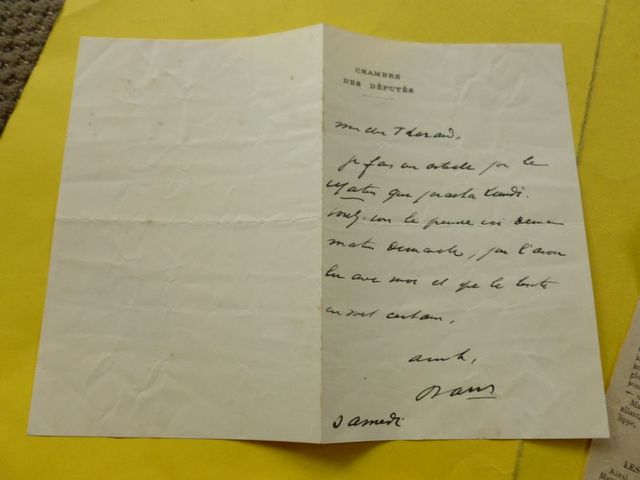 CHAMBRE
DES DÉPUTÉS
mon cher Tharaud,
je fais un article pour le
Matin que paraîtra Lundi.
voulez-vous le prendre ici demain
matin Dimanche, pour l'avoir
lu avec moi et que le texte
en soit certain,
amitiés,
Barrès
Samedi